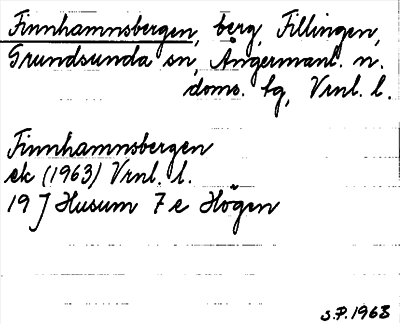 Finnhamnsbergen, berg, Fillingen,
Grundsunda sn, Ångermanl. n.
doms. lg, Vrnl. l.
Finnhamnsbergen
ek (1963) Vrnl. l.
19 J Husum 7 e Högen
S.P. 1968